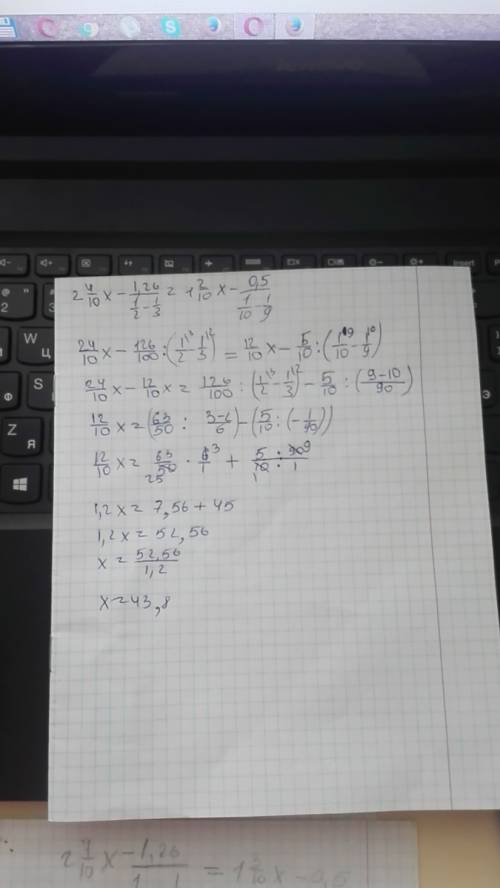 2 4/10 x - 1,26/(1/2 - 1/3) = 1 2/10 x - 0,5/(1/10 - 1/9)
24/10 x - 126/100 : (1/2 - 1/3) = 12/10 x - 5/10 : (1/10 - 1/9)
24/10 x - 12/10 x = 126/100 : (1/2 - 1/3) - 5/10 : (9-10/90)
12/10 x = (63/50 : 3-2/6) - (5/10 : (-1/90))
12/10 x = 63/50 · 6/1 + 5/10 · 90/1
1,2x = 7,56 + 45
1,2x = 52,56
x = 52,56/1,2
x = 43,8